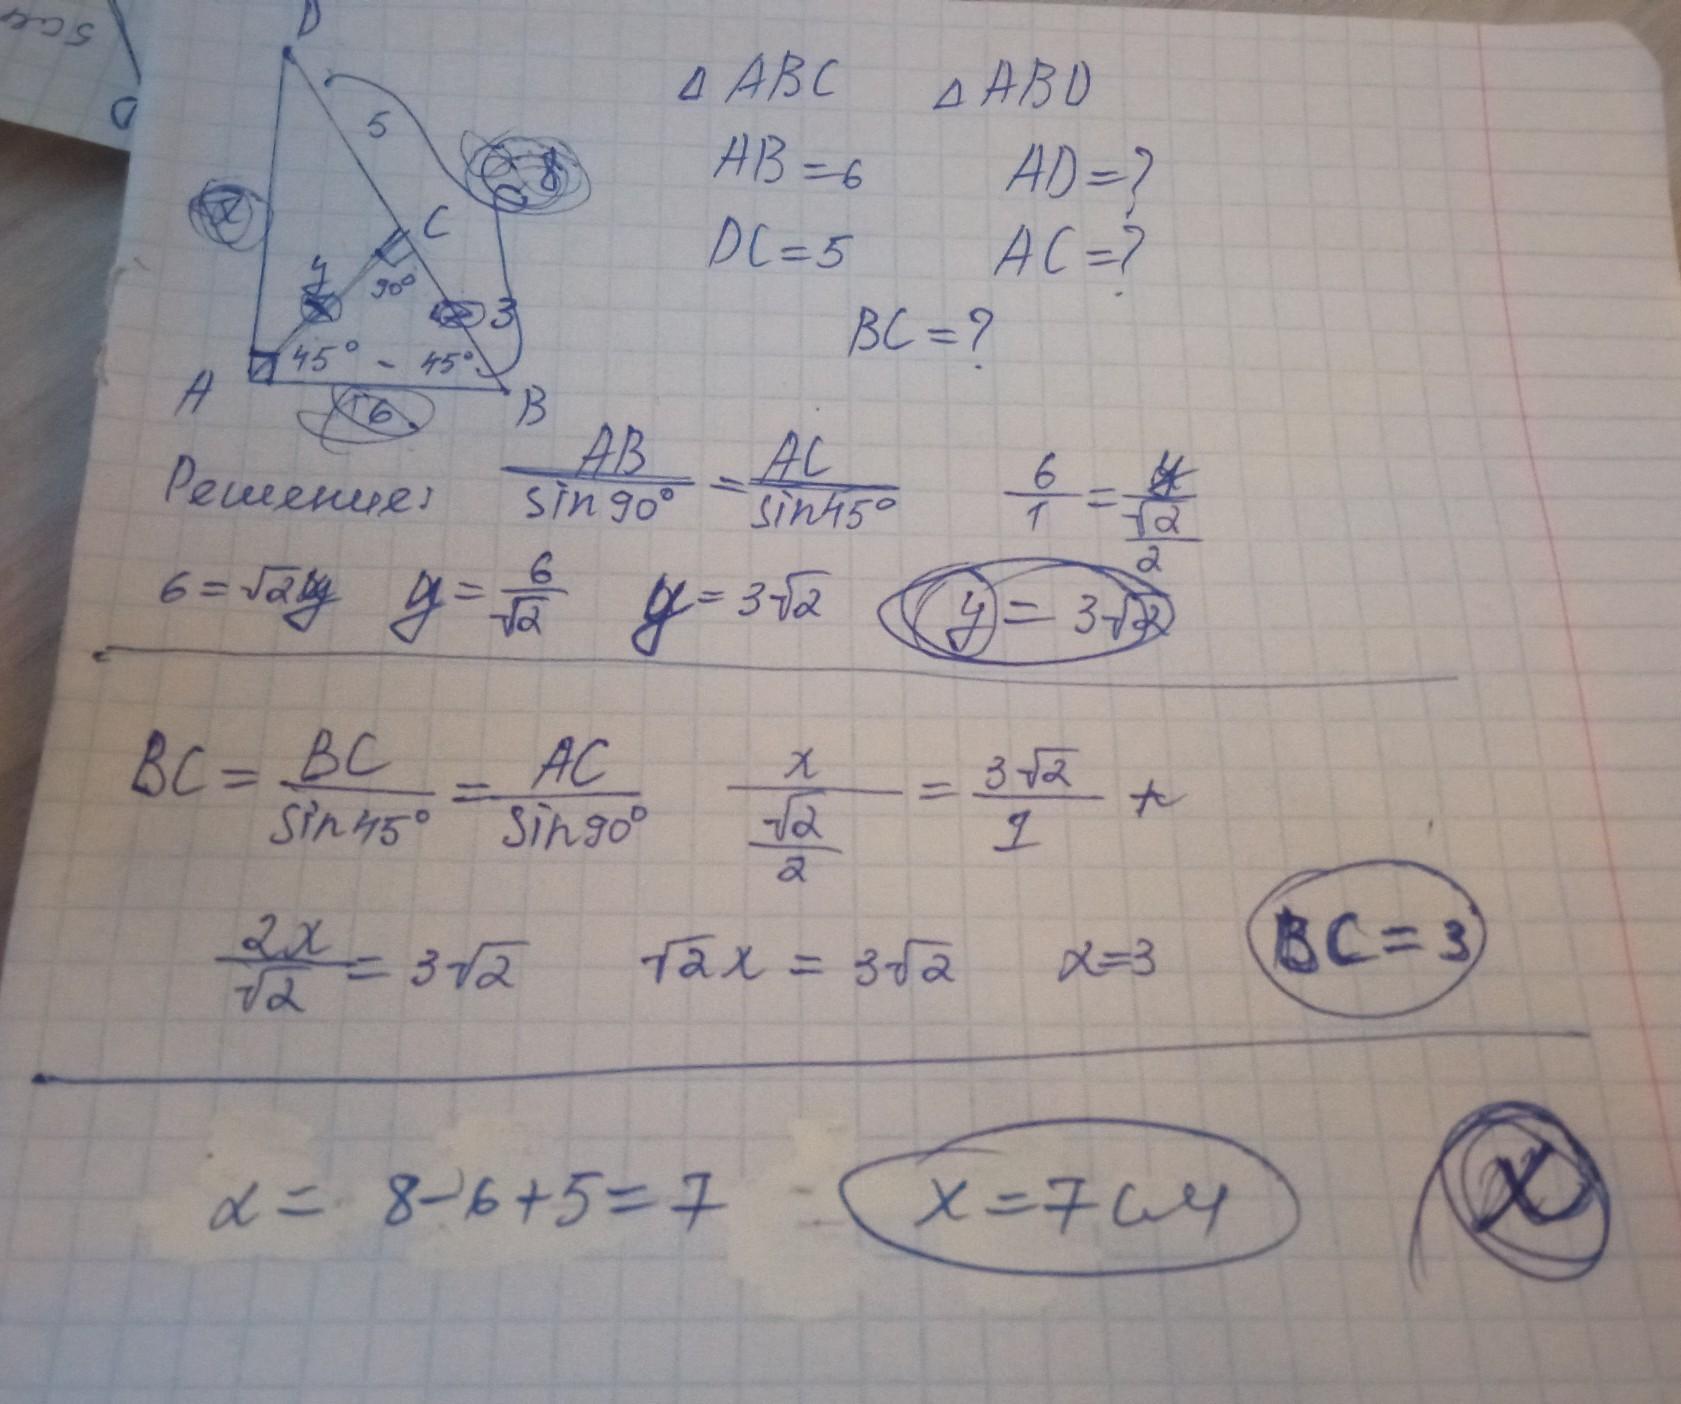 5см
D
5
8
x
C
y
90°
3
45° - 45°
A
6
B
△ ABC △ ABD
AB = 6 AD = ?
DC = 5 AC = ?
BC = ?
Решение: AB/sin90° = AC/sin45° 6/1 = y/(√2/2)
6 = √2y y = 6/√2 y = 3√2 y = 3√2
BC = BC/sin45° = AC/sin90° x/(√2/2) = 3√2/1
2x/√2 = 3√2 √2x = 3√2 x = 3 BC = 3
x = 8 - 6 + 5 = 7 x = 7 см x